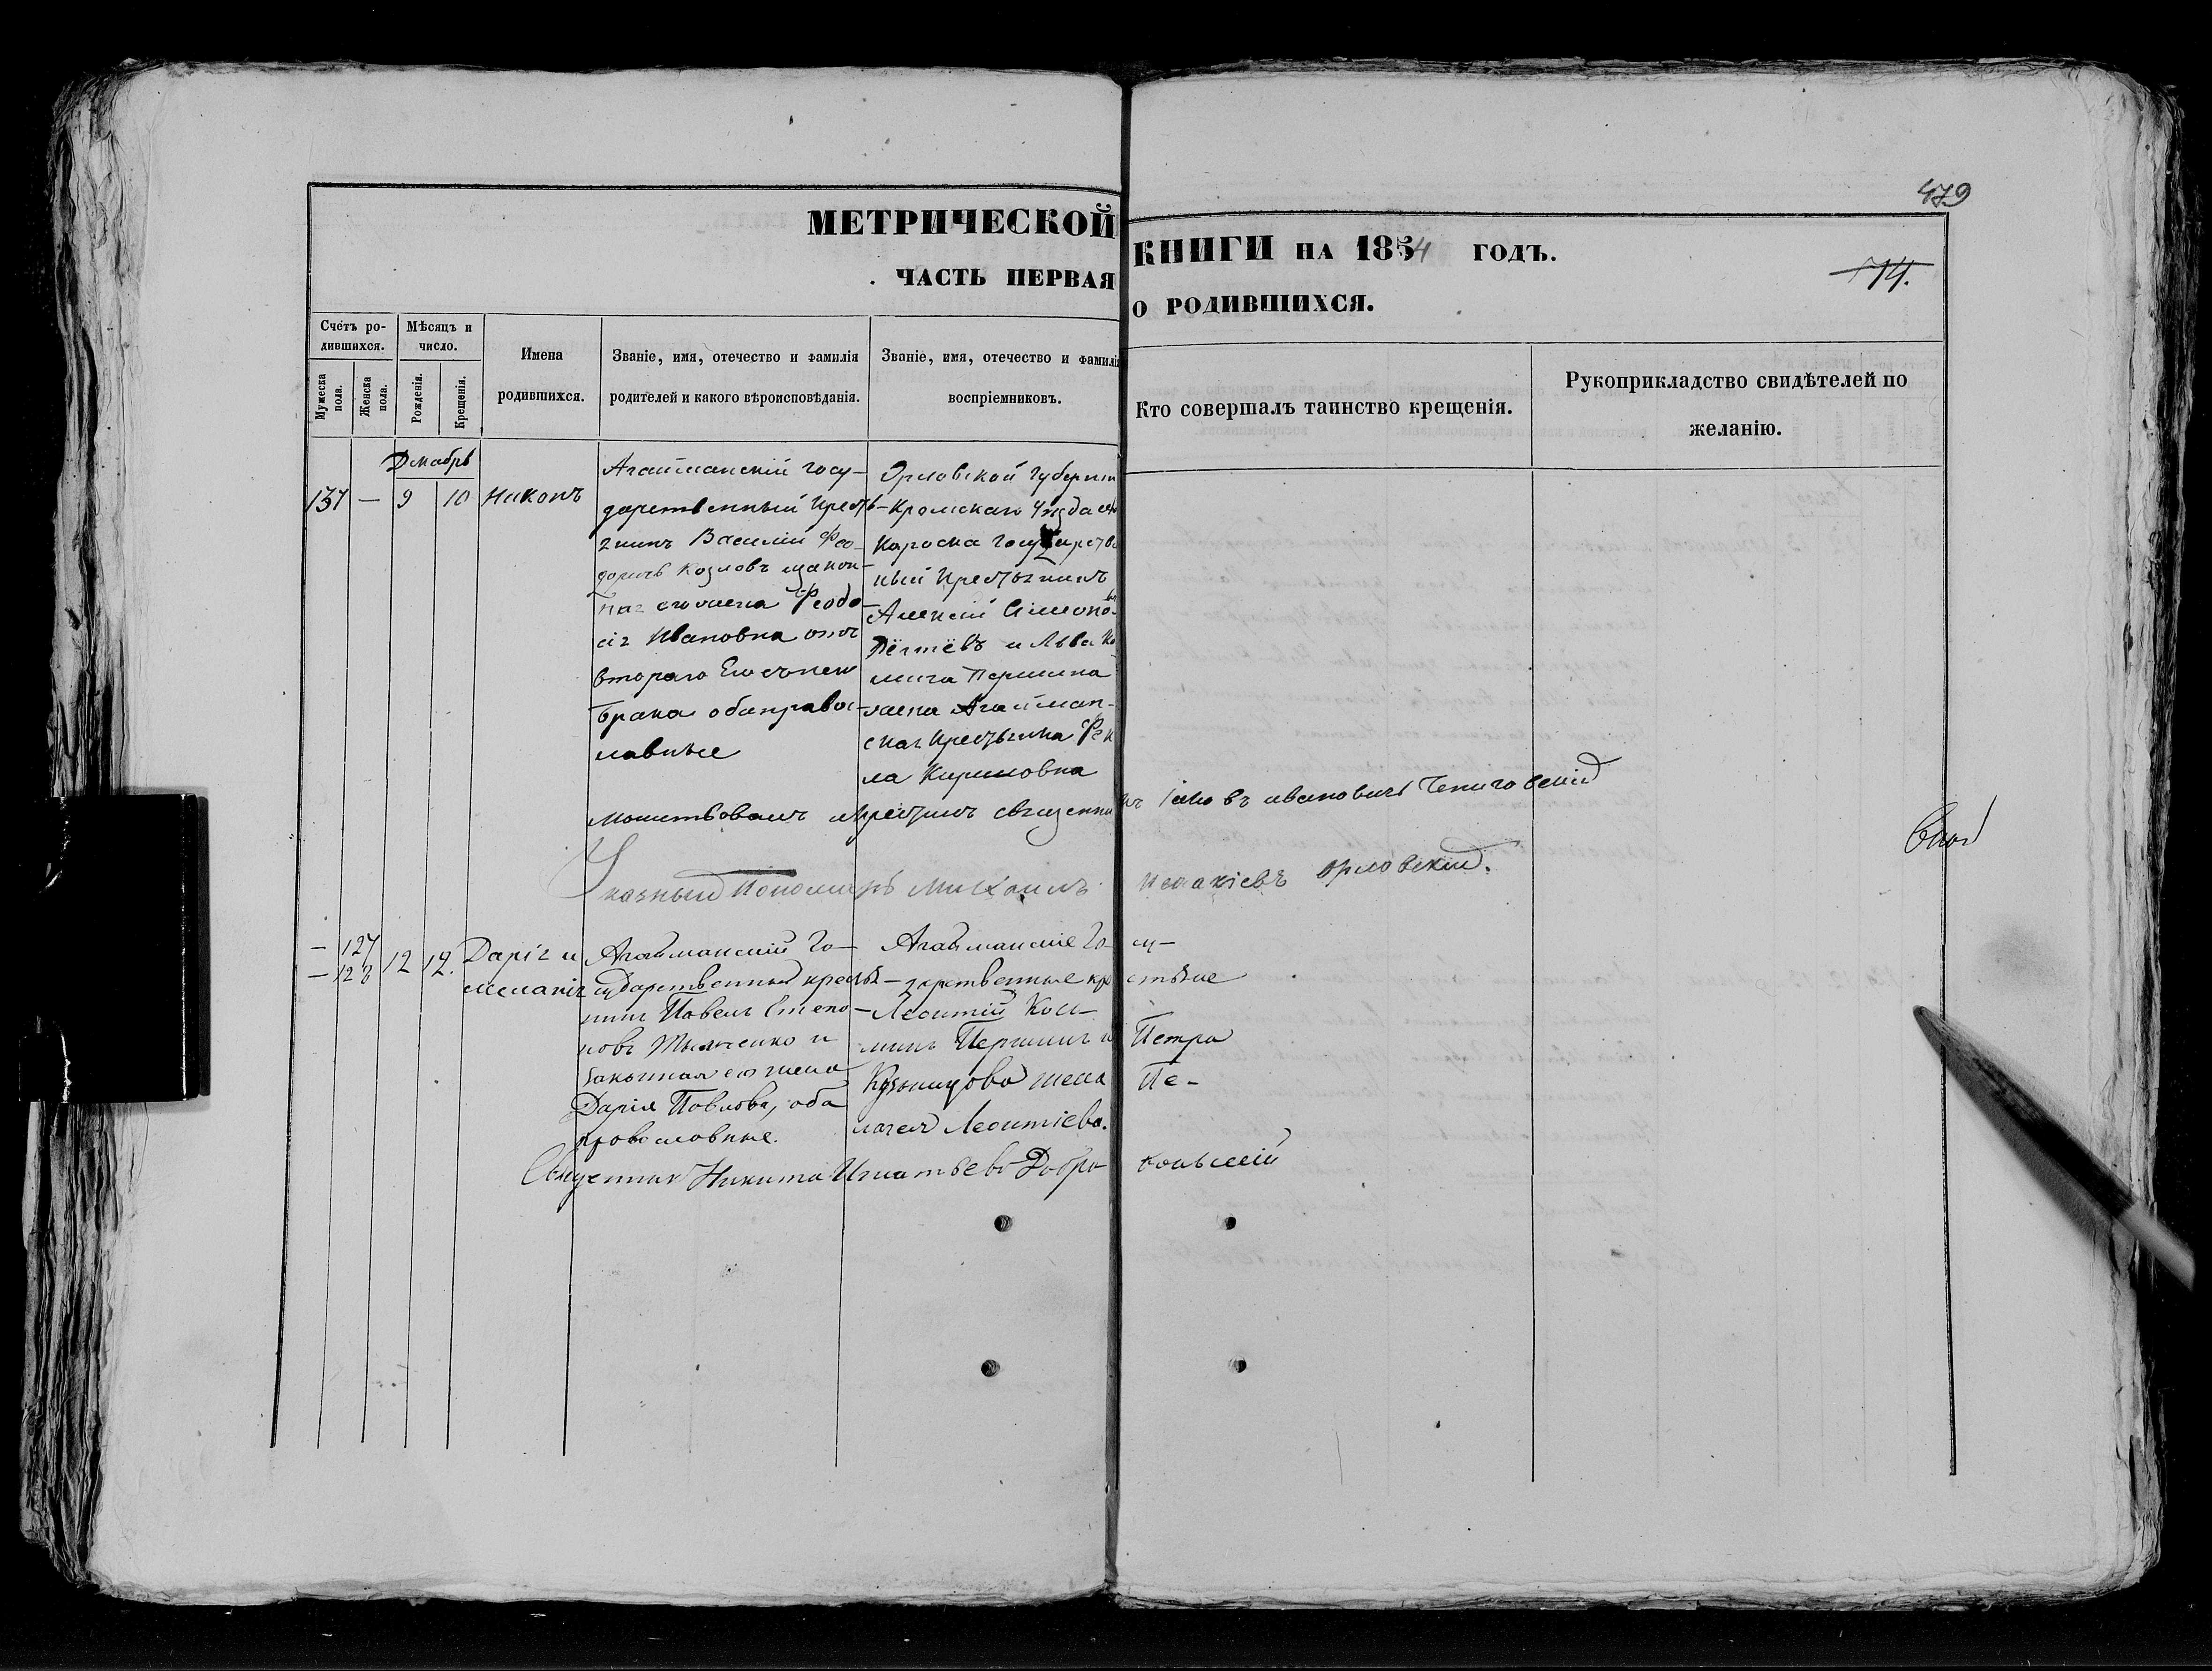 479
МЕТРИЧЕСКОЙ КНИГИ НА 1854 ГОДЪ.
714.
ЧАСТЬ ПЕРВАЯ О РОДИВШИХСЯ.
Счетъ родившихся.
Мужеска пола.
Женска пола.
Мѣсяцъ и число.
Рожденія.
Крещенія.
Имена родившихся.
Званіе, имя, отечество и фамилія родителей и какого вѣроисповѣданія.
Званіе, имя, отечество и фамилія воспріемниковъ.
Кто совершалъ таинство крещенія.
Рукоприкладство свидѣтелей по желанію.
Декабрь
137 — 9 10 Никонъ
Агайманскій госу-
дарственный крестья
нинъ Василій Фео-
доровъ Козловъ изакон-
ная его жена Феодо-
сія Ивановна отъ
втораго
брака оба право-
лавные
Орловской Губерни
Кромскаго Уезда
Государстве
ный Крестьянинъ
Алексій Симоно
и Льва
Першина
жена Агайман-
ская Крестьянка Фек
ла Кириловна
Молитвовалъ икрестилъ священникъ Іаковъ ивановичъ
Указный Пономарь Михаилъ Исаакіевъ Орловскій.
— 127
— 128
12 12. Дарія и
Меланія
Агайманскій Го-
сударственный крестья-
нинъ Павелъ Степа-
новъ и
Законная его жена
Дарія Павлова, оба
православные.
Агайманскіе Госу-
дарственные кре стьяне
Леонтій Кось-
минъ Першинъ и Петра
Кузьницова жена Пе-
лагея Леонтіева.
Священникъ Никита Игнатьевъ Добровольскій